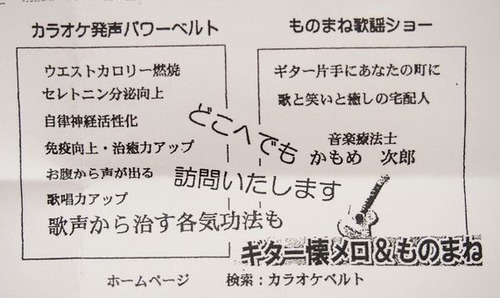 カラオケ発声パワーベルト
ウエストカロリー燃焼
セレトニン分泌向上
自律神経活性化
免疫向上・治癒力アップ
お腹から声が出る
歌唱力アップ
歌声から治す各気功法も
どこへでも
訪問いたします
ものまね歌謡ショー
ギター片手にあなたの町に
歌と笑いと癒しの宅配人
音楽療法士
かもめ 次郎
ギター懐メロ&ものまね
ホームページ 検索：カラオケベルト